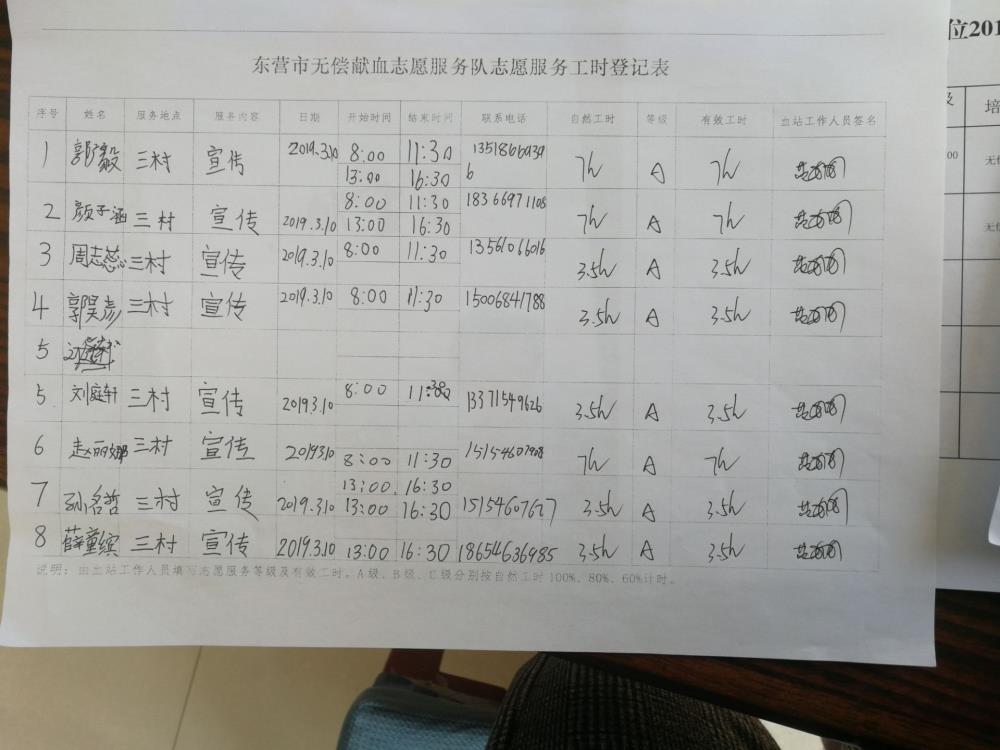 位201
东营市无偿献血志愿服务队志愿服务工时登记表
序号 姓名 服务地点 服务内容 日期 开始时间 结束时间 联系电话 自然工时 等级 有效工时 血站工作人员签名
培
1 郭毅 三村 宣传 2019.3.10 8:00 11:30 7h A 7h
13:00 16:30
2 颜子涵 三村 宣传 2019.3.10 8:00 11:30 18366971108 7h A 7h
13:00 16:30
3 周志蕊 三村 宣传 2019.3.10 8:00 11:30 13561066016 3.5h A 3.5h
4 郭昊彦 三村 宣传 2019.3.10 8:00 11:30 15006841788 3.5h A 3.5h
5
5 刘庭轩 三村 宣传 2019.3.10 8:00 11:30 13371549626 3.5h A 3.5h
6 赵丽娜 三村 宣传 2019.3.10 8:00 11:30 7h A 7h
13:00 16:30
7 孙名哲 三村 宣传 2019.3.10 13:00 16:30 15154607627 3.5h A 3.5h
8 薛童缤 三村 宣传 2019.3.10 13:00 16:30 18654636985 3.5h A 3.5h
说明：由血站工作人员填写志愿服务等级及有效工时。A级、B级、C级分别按自然工时100%、80%、60%计时。